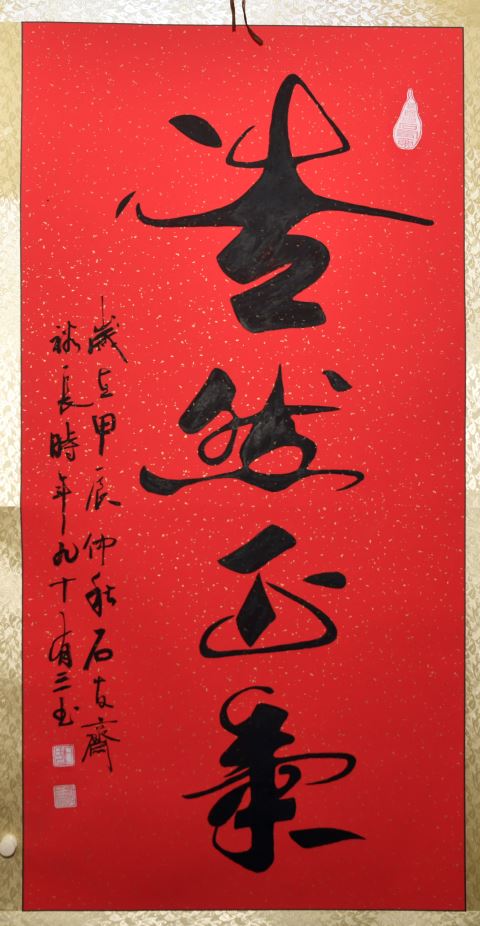 浩然正氣
歲在甲辰仲秋石友齋
林長時年九十有三书